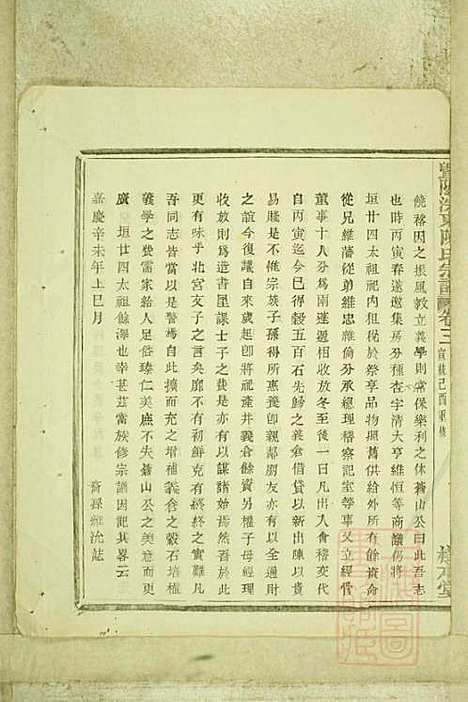 饒裕因之振風敦立義學則常保樂利之休蒼山公曰此吾志
也時丙寅春遂邀集房分種杏字清大亨維恒等商議仍將
垣廿四太祖祀內扣於祭享品物照舊供給外所有餘資命
從兄維藩從弟維忠維倫分承總理稽察記室等事又立經管
董事十八分爲兩連遞相收放冬至後一日凡出入會稽交代
自丙寅迄今已得穀五百石先歸之義倉借貸以新出陳以
易賤是不惟宗族子孫得所惠養卽親鄰朋友亦有以全通財
之誼今復議自來歲起卽將祀產幷義倉餘資另權子母經理
收放則將爲造書屋課士子之費是亦有以謀諸始焉然吾於此
更有味乎北宮文子之言矣靡不有初鮮克有終終之實難凡
吾同志皆當以是爲警焉自此擴而充之增補義倉之穀石培植
義學之費需家給人足俗臻仁美庶不失蒼山公之美意而更
廣 垣廿四太祖餘澤也幸甚茲當族修宗譜因記其畧云
嘉慶辛未年上巳月
裔孫維治誌
暨陽 東陳氏宗譜 卷三 宣統己酉重修